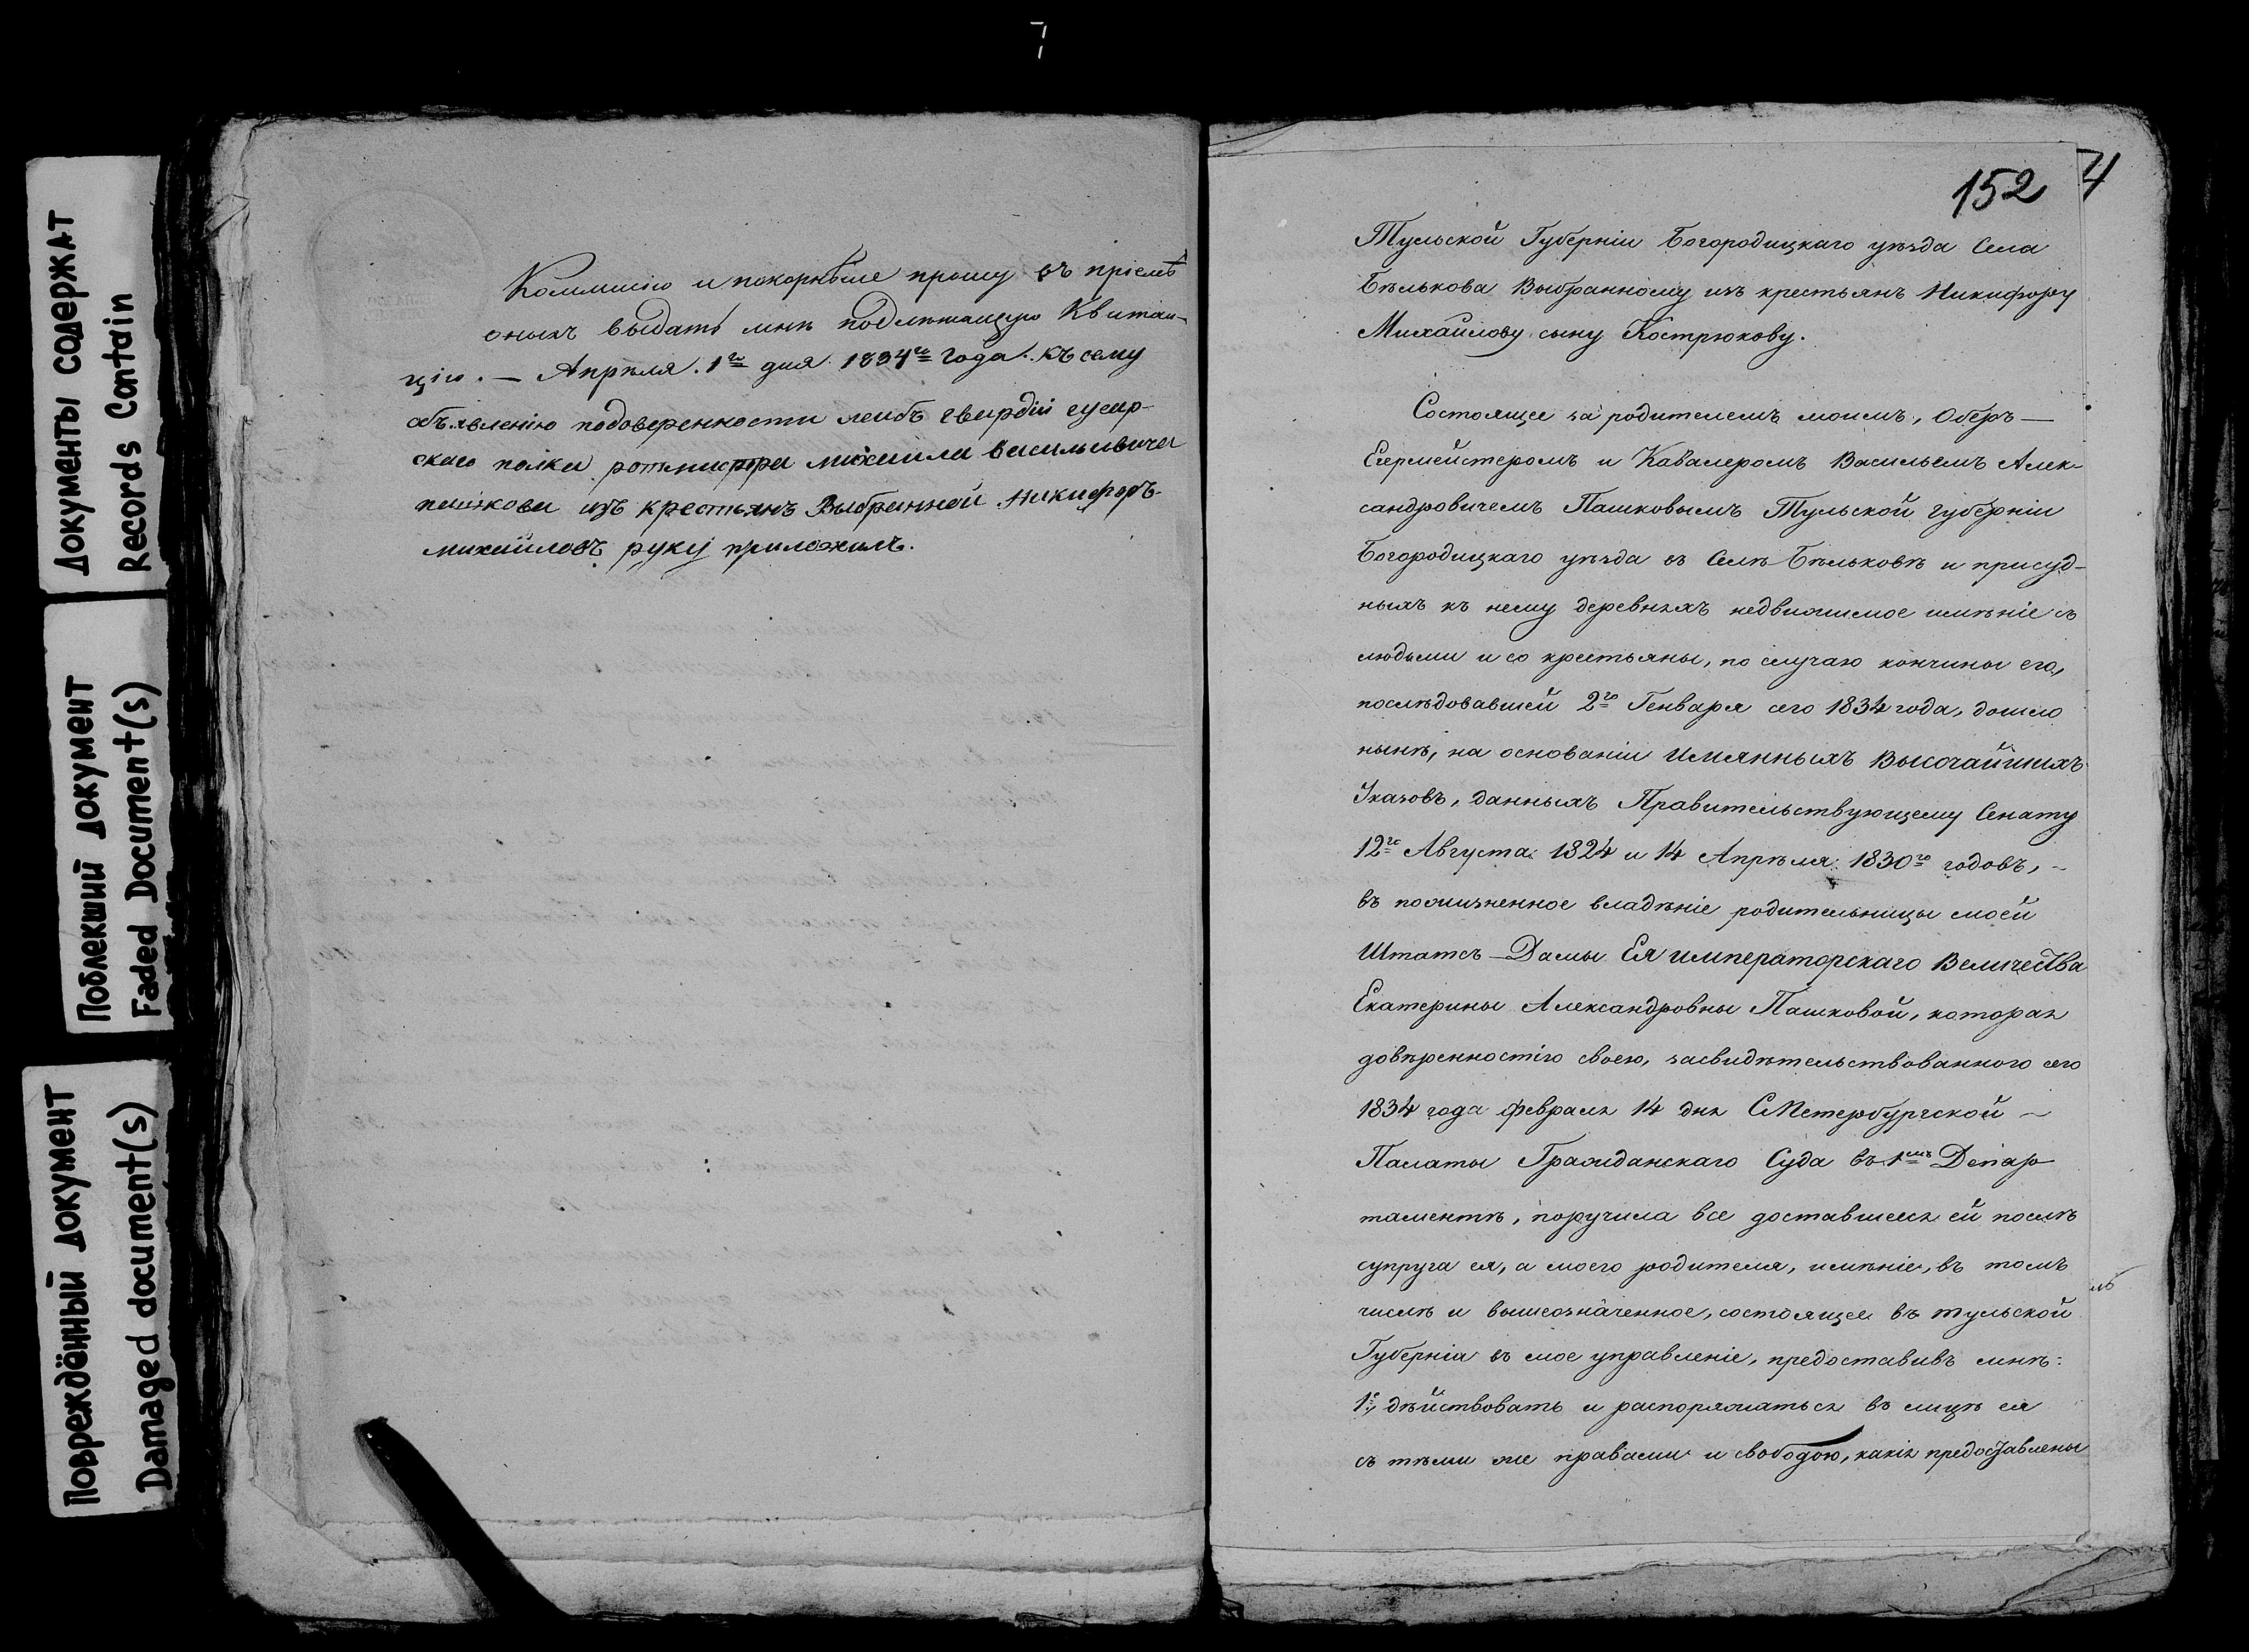 7
Документы содержат
Records Contain
Поблекший документ
Faded Document(s)
Повреждённый документ
Damaged document(s)
Коммисію и покорнѣйше прошу въ пріемѣ
оныхъ выдать мнѣ подлѣжащую Квитан-
цію. — Апрѣля. 1го дня 1834го года. Къ сему
объявленію подоверенности леибъ гвардіи гусар
скаго полка ротмистра михаила васильивича
пашкова изъ крестьянъ Выбранной Никифоръ
михайловъ руку приложилъ.
152 4
Тульской Губерніи Богородицкаго уѣзда Села
Бѣлькова Выбранному изъ крестьянъ Никифору
Михайлову сыну Кострюкову.
Состоящее за родителемъ моимъ, Оберъ —
Егермейстеромъ и Кавалеромъ Васильемъ Алек-
сандровичемъ Пашковымъ Тульской губерніи
Богородицкаго уѣзда въ Селѣ Бѣльковѣ и присуд-
ныхъ къ нему деревняхъ недвижимое имѣніе съ
людьми и со крестьяны, по случаю кончины его,
послѣдовавшей 2го Генваря сего 1834 года, дошло
нынѣ, на основаніи Имянныхъ Высочайшихъ
Указовъ, данныхъ Правительствующему Сенату
12го Августа 1824 и 14 Апрѣля 1830го годовъ, -
въ пожизненное владѣніе родительницы моей
Штатсъ-Дамы Ея Императорскаго Величества
Екатерины Александровны Пашковой, которая
довѣренностію своею, засвидѣтельствованною сего
1834 года февраля 14 дня СПетербургской -
Палаты Гражданскаго Суда въ 1мъ Депар
таментѣ, поручила все доставшееся ей послѣ
супруга ея, а моего родителя, имѣніе, въ томъ
числѣ и вышеозначенное, состоящее въ тульской
Губерніи въ мое управленіе, предоставивъ мнѣ:
1е, дѣйствовать и распоряжаться въ лицѣ ея
съ тѣми же правами и свободою, какія предоставлены